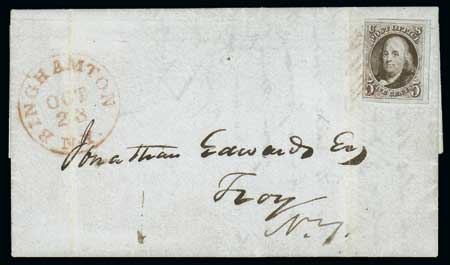 BINGHAMTON
OCT
23
N.Y.
POST OFFICE
FIVE CENTS
5 5
Jonathan Edwards Esq
Troy
N.Y.